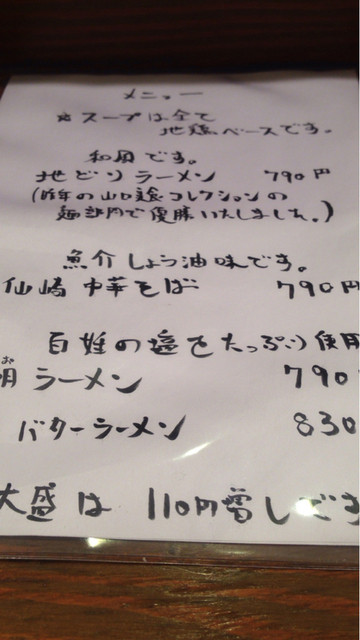 メニュー
☆スープは全て
地鶏ベースです。
和風です。
地どりラーメン 790円
(昨年の山口美食コレクションの
麺部門で優勝いたしました。)
魚介しょう油味です。
仙崎中華そば 790円
百姓の塩をたっぷり使用
ラーメン 790
バターラーメン 830
大盛は 110円増しです